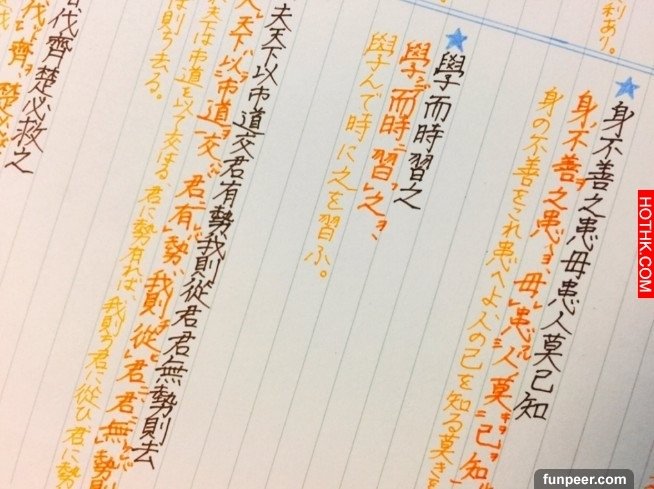 利あり。
身不善之患毋患人莫己知
身不善之患、毋患人莫己知
身の不善をこれ患へよ、人の己を知る莫きを
學而時習之
學而時習之、
學んで時に之を習ふ。
夫天下以市道交君有勢我則從君君無勢則去
夫天下以市道交、君有勢、我則從君、君無勢則
天下は市道を以て交はる、君に勢有れば、我則ち君に從ひ、君に勢
は則ち去る。
伐齊楚必救之
伐齊、楚必
HOTHK.COM
funpeer.com